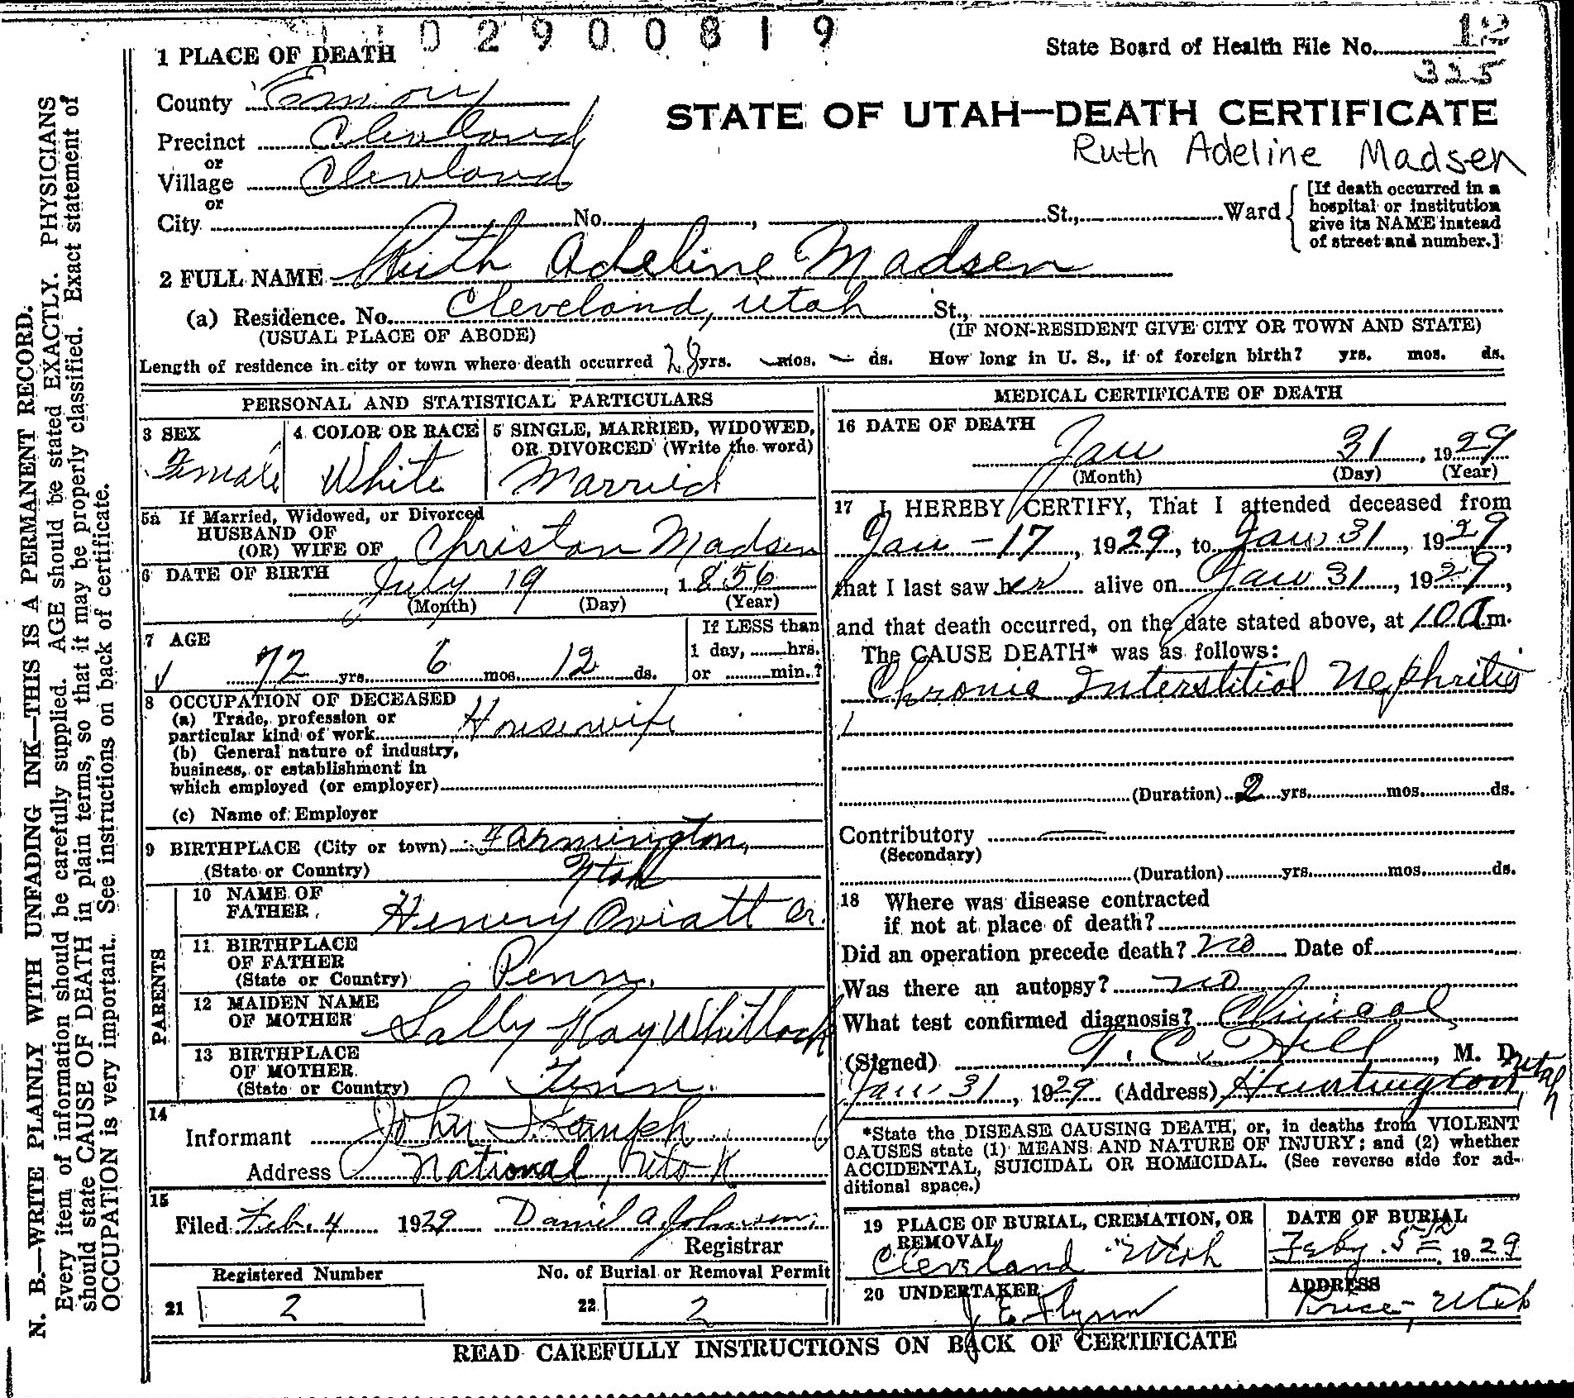 02900819
State Board of Health File No. 12
335
1 PLACE OF DEATH
County Emory
STATE OF UTAH—DEATH CERTIFICATE
Precinct Cleveland
Ruth Adeline Madsen
or
Village Cleveland
or
City No. , St., Ward
[If death occurred in a
hospital or institution
give its NAME instead
of street and number.]
2 FULL NAME Ruth Adeline Madsen
(a) Residence. No. Cleveland, Utah St.,
(USUAL PLACE OF ABODE) (IF NON-RESIDENT GIVE CITY OR TOWN AND STATE)
Length of residence in city or town where death occurred 28 yrs. — mos. — ds. How long in U. S., if of foreign birth? yrs. mos. ds.
PERSONAL AND STATISTICAL PARTICULARS
3 SEX
Female
4 COLOR OR RACE
White
5 SINGLE, MARRIED, WIDOWED,
OR DIVORCED (Write the word)
Married
5a If Married, Widowed, or Divorced
HUSBAND OF
(OR) WIFE OF Christian Madsen
6 DATE OF BIRTH July 19, 1856
(Month) (Day) (Year)
7 AGE
72 yrs. 6 mos. 12 ds.
If LESS than
1 day, ......hrs.
or ......min.?
8 OCCUPATION OF DECEASED
(a) Trade, profession or
particular kind of work Housewife
(b) General nature of industry,
business, or establishment in
which employed (or employer)
(c) Name of Employer
9 BIRTHPLACE (City or town) Farmington,
(State or Country) Utah
PARENTS
10 NAME OF
FATHER Henry Oviatt Sr.
11 BIRTHPLACE
OF FATHER
(State or Country) Penn.
12 MAIDEN NAME
OF MOTHER Sally Kay Whitlock
13 BIRTHPLACE
OF MOTHER
(State or Country) Tenn.
14
Informant John
Address National, Utah
15
Filed Feb. 4 1929 Daniel A. Johnson
Registrar
Registered Number
21 2
No. of Burial or Removal Permit
22 2
MEDICAL CERTIFICATE OF DEATH
16 DATE OF DEATH
Jan 31, 1929
(Month) (Day) (Year)
17 I HEREBY CERTIFY, That I attended deceased from
Jan - 17, 1929, to Jan 31, 1929,
that I last saw her alive on Jan 31, 1929,
and that death occurred, on the date stated above, at 10 A m.
The CAUSE DEATH* was as follows:
Chronic Interstitial Nephritis
(Duration) 2 yrs. mos. ds.
Contributory —
(Secondary)
(Duration) yrs. mos. ds.
18 Where was disease contracted
if not at place of death?
Did an operation precede death? no Date of
Was there an autopsy? no
What test confirmed diagnosis? Clinical
(Signed) T. C. Hill, M. D.
Jan 31, 1929 (Address) Huntington, Utah
*State the DISEASE CAUSING DEATH, or, in deaths from VIOLENT
CAUSES state (1) MEANS AND NATURE OF INJURY; and (2) whether
ACCIDENTAL, SUICIDAL OR HOMICIDAL. (See reverse side for ad-
ditional space.)
19 PLACE OF BURIAL, CREMATION, OR
REMOVAL
Cleveland Utah
DATE OF BURIAL
Feby. 5th 1929
20 UNDERTAKER
J. E. Flynn
ADDRESS
Price, Utah
READ CAREFULLY INSTRUCTIONS ON BACK OF CERTIFICATE
N. B.—WRITE PLAINLY WITH UNFADING INK—THIS IS A PERMANENT RECORD.
Every item of information should be carefully supplied. AGE should be stated EXACTLY. PHYSICIANS
should state CAUSE OF DEATH in plain terms, so that it may be properly classified. Exact statement of
OCCUPATION is very important. See instructions on back of certificate.